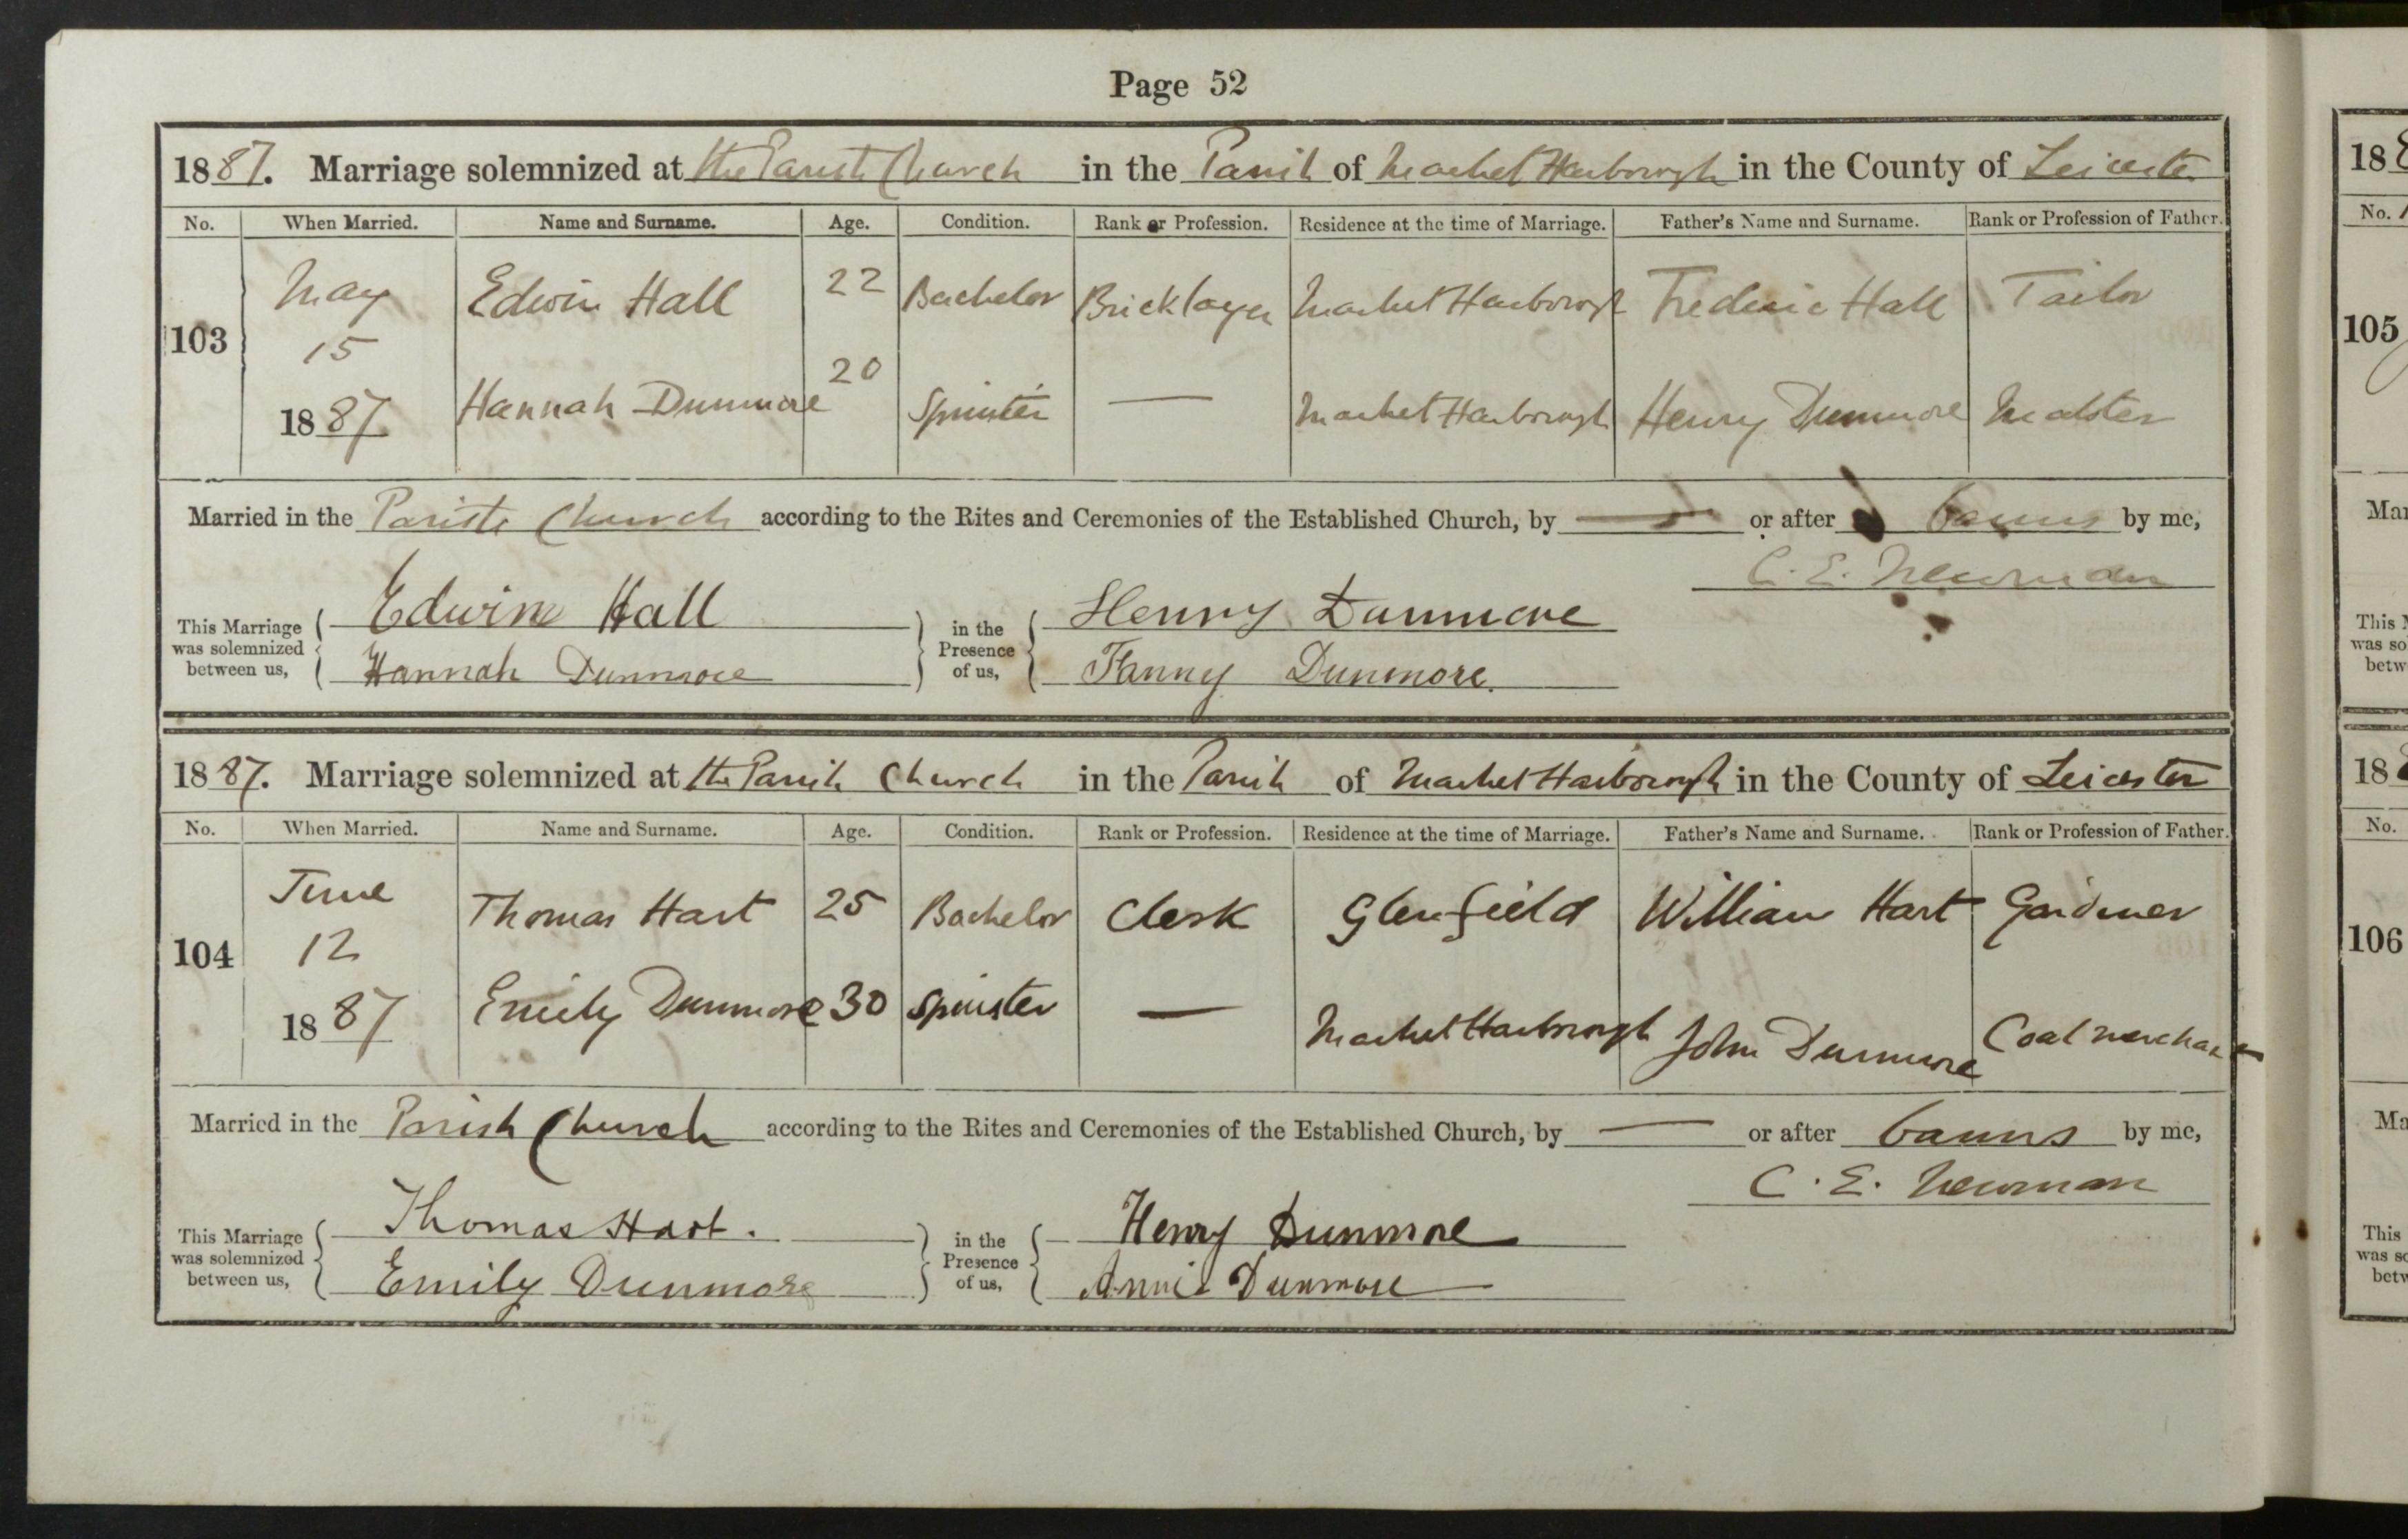 Page 52
1887. Marriage solemnized at the Parish Church in the Parish of Market Harborough in the County of Leicester
No. When Married. Name and Surname. Age. Condition. Rank or Profession. Residence at the time of Marriage. Father's Name and Surname. Rank or Profession of Father.
103 May 15 1887 Edwin Hall 22 Bachelor Bricklayer Market Harborough Frederic Hall Tailor
Hannah Dunmore 20 Spinster — Market Harborough Henry Dunmore Malster
Married in the Parish Church according to the Rites and Ceremonies of the Established Church, by — or after banns by me,
C. E. Newman
This Marriage was solemnized between us, Edwin Hall Hannah Dunmore in the Presence of us, Henry Dunmore Fanny Dunmore.
1887. Marriage solemnized at the Parish Church in the Parish of Market Harborough in the County of Leicester
No. When Married. Name and Surname. Age. Condition. Rank or Profession. Residence at the time of Marriage. Father's Name and Surname. Rank or Profession of Father.
104 June 12 1887 Thomas Hart 25 Bachelor Clerk Glenfield William Hart Gardiner
Emily Dunmore 30 Spinster — Market Harborough John Dunmore Coal merchant
Married in the Parish Church according to the Rites and Ceremonies of the Established Church, by — or after banns by me,
C. E. Newman
This Marriage was solemnized between us, Thomas Hart. Emily Dunmore in the Presence of us, Henry Dunmore Annie Dunmore
18
No.
105
18
No.
106